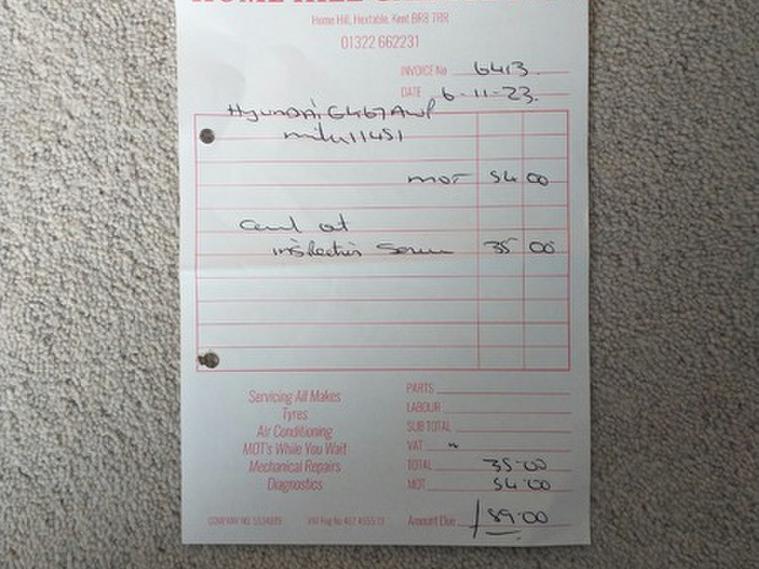 Home Hill, Hextable, Kent BR8 7RR
01322 662231
INVOICE No 6413
DATE 6-11-23
Hyundai
MOT 54 00
out
inspection 35 00
Servicing All Makes
Tyres
Air Conditioning
MOT's While You Wait
Mechanical Repairs
Diagnostics
PARTS
LABOUR
SUB TOTAL
VAT
TOTAL 35-00
MOT 54-00
Amount Due 89-00
COMPANY NO.
VAT Reg No